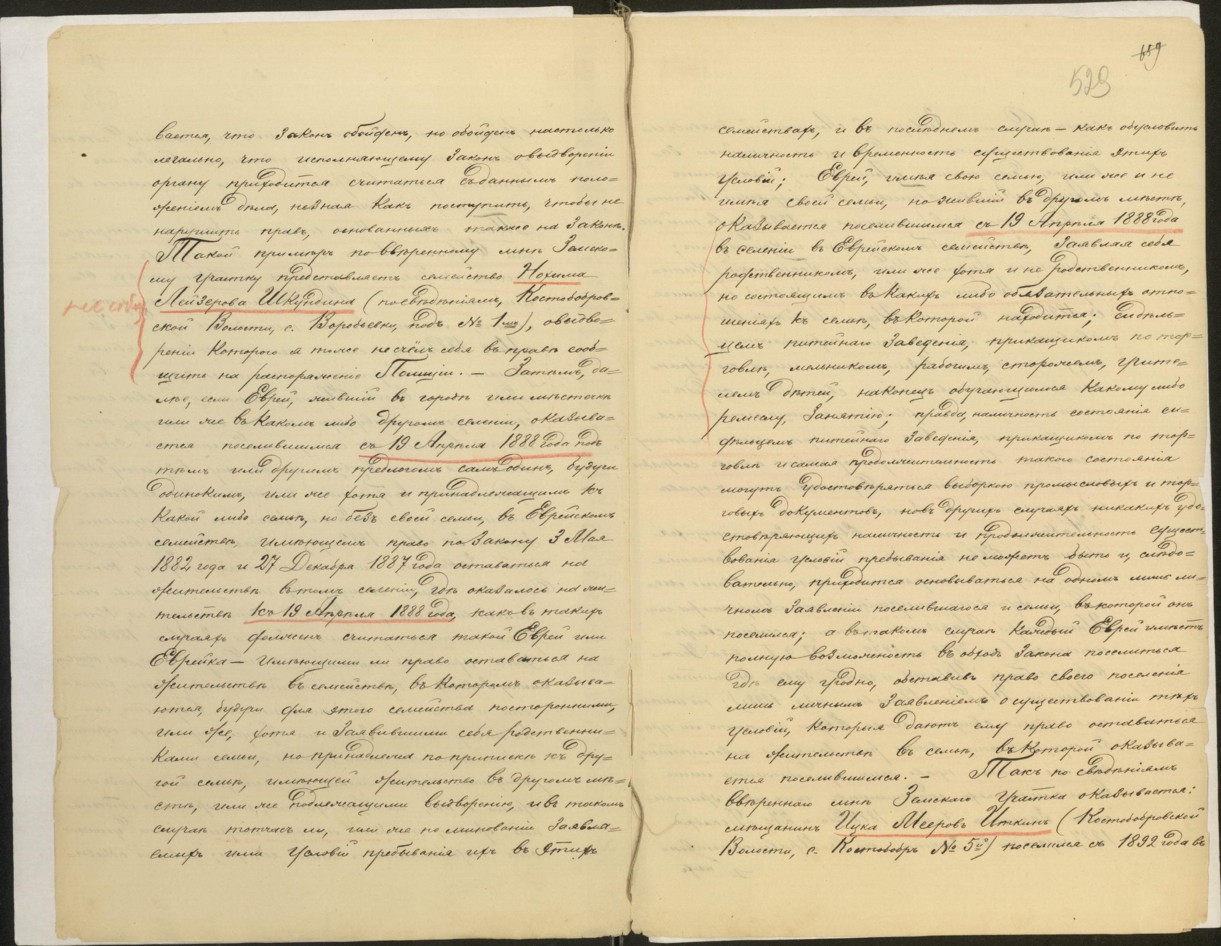 вается, что законъ обойденъ, но обойденъ настолько
легально, что исполняющему законъ о выдвореніи
органу приходится считаться съ даннымъ поло=
женіемъ дѣла, не зная какъ поступить, чтобы не
нарушить правъ, основанныхъ также на законѣ.
Такой примѣръ по ввѣренному мнѣ Земско=
му участку представляетъ семейство Нохима
Лейзерова Шкундина (по свѣдѣніямъ, Костобобров=
ской Волости, с. Воробьевки, подъ № 1мъ), о выдво=
реніи котораго я также не счелъ себя въ правѣ сооб=
щить на распоряженіе Полиціи. — Затѣмъ, да=
лѣе, если Еврей, жившій въ городѣ или мѣстечкѣ
или же въ какомъ либо другомъ селеніи, оказыва=
ется поселившимся съ 19 Апрѣля 1888 года подъ
тѣмъ или другимъ предлогомъ самъ одинъ, будучи
одинокимъ, или же хотя и принадлежащимъ къ
какой либо семьѣ, но безъ своей семьи, въ Еврейскомъ
семействѣ, имѣющемъ право по закону 3 Мая
1882 года и 27 Декабря 1887 года оставаться на
жительствѣ въ томъ селеніи, гдѣ оказалось на жи=
тельствѣ къ 19 Апрѣля 1888 года, какъ въ такихъ
случаяхъ долженъ считаться такой Еврей или
Еврейка — имѣющими ли право оставаться на
жительствѣ въ семействѣ, въ которомъ оказыва=
ются, будучи для этого семейства посторонними,
или же, хотя и заявившими себя родственни=
ками семьи, но
гой семьѣ, имѣющей жительство въ другомъ мѣ=
стѣ, или же подлежащими выдворенію, и въ такомъ
случаѣ тотчасъ ли, или же по минованіи заявля=
емыхъ ими условій пребыванія ихъ въ этихъ
619
529
семействахъ, и въ послѣднемъ случаѣ — какъ обусловить
наличность и временность существованія этихъ
условій; Еврей, имѣя свою семью, или же и не
имѣя своей семьи, но жившій въ другомъ мѣстѣ,
оказывается поселившимся съ 19 Апрѣля 1888 года
въ селеніи въ Еврейскомъ семействѣ, заявляя себя
родственникомъ, или же хотя и не родственникомъ,
но состоящимъ въ какихъ либо обязательныхъ отно=
шеніяхъ къ семьѣ, въ которой находится; сидѣль=
цемъ питейнаго заведенія, прикащикомъ по тор=
говлѣ, мельникомъ, рабочимъ, сторожемъ, учите=
лемъ дѣтей, наконецъ обучающимся какому либо
ремеслу, занятію; правда, наличность состоянія си=
дѣльцемъ питейнаго заведенія, прикащикомъ по тор=
говлѣ и самая продолжительность такого состоянія
могутъ удостовѣряться выборкою промысловыхъ и тор=
говыхъ документовъ, но въ другихъ случаяхъ никакихъ удо=
стовѣряющихъ наличность и продолжительность сущест=
вованія условій пребыванія не можетъ быть и, слѣдо=
вательно, приходится основываться на одномъ лишь ли=
чномъ заявленіи поселившагося и семьи, въ которой онъ
поселился; а въ такомъ случаѣ каждый Еврей имѣетъ
полную возможность въ обходъ закона поселиться
гдѣ ему угодно, обставивъ право своего поселенія
лишь личнымъ заявленіемъ о существованіи тѣхъ
условій, которыя даютъ ему право оставаться
на жительствѣ въ семьѣ, въ которой оказыва=
ется поселившимся. — Такъ по свѣдѣніямъ
ввѣреннаго мнѣ Земскаго Участка оказывается:
мѣщанинъ Ицка Мееровъ Иткинъ (Костобобровской
Волости, с. Костобобръ № 5й) поселился съ 1892 года въ